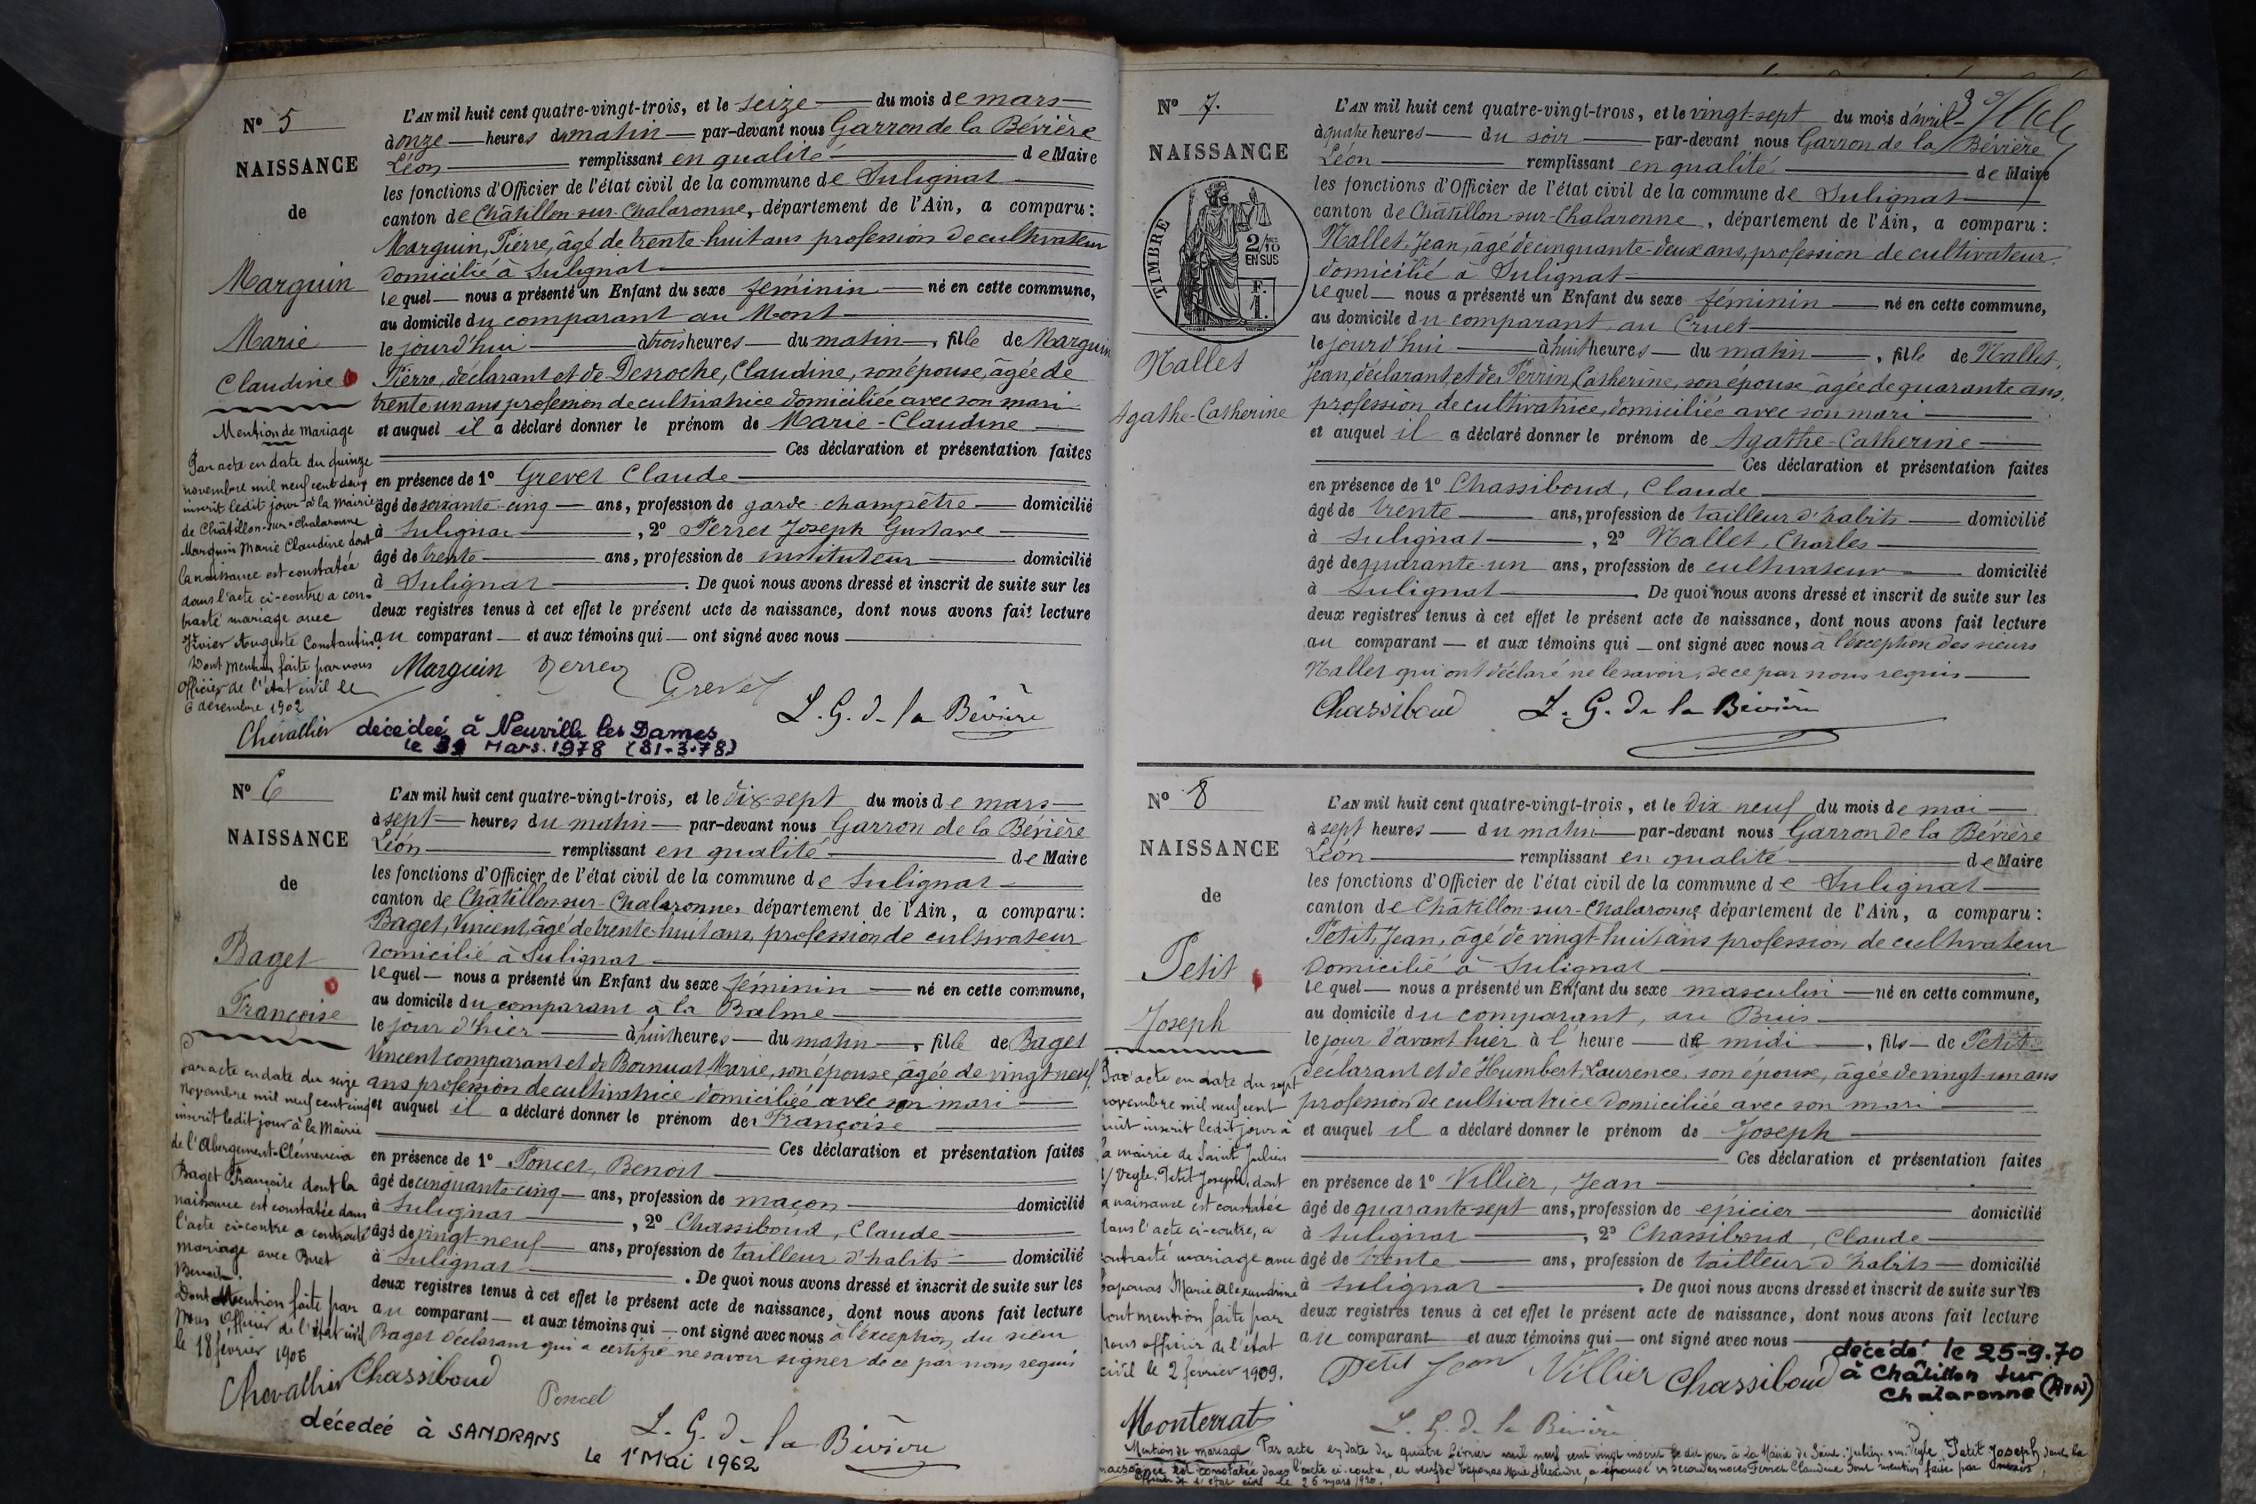 N° 5
NAISSANCE
de
Marguin
Marie
Claudine
Mention de mariage
Par acte en date du quinze
novembre mil neuf cent deux
inscrit ledit jour à la Mairie
de Châtillon-sur-Chalaronne
Marguin Marie Claudine dont
la naissance est constatée
dans l'acte ci-contre a con-
tracté mariage avec
Auguste Constantin.
Dont mention faite par nous
Officier de l'état civil le
6 décembre 1902
Chevallier
L'AN mil huit cent quatre-vingt-trois, et le seize du mois de mars
à onze heures du matin par-devant nous Garron de la Bévière
Léon remplissant en qualité de Maire
les fonctions d'Officier de l'état civil de la commune de Sulignat
canton de Châtillon-sur-Chalaronne, département de l'Ain, a comparu :
Marguin, Pierre, âgé de trente-huit ans profession de cultivateur
domicilié à Sulignat
lequel nous a présenté un Enfant du sexe féminin né en cette commune,
au domicile du comparant au Mont
le jourd'hui à trois heures du matin, fille de Marguin
Pierre, déclarant et de Desroche, Claudine, son épouse, âgée de
trente un ans profession de cultivatrice domiciliée avec son mari
et auquel il a déclaré donner le prénom de Marie-Claudine
Ces déclaration et présentation faites
en présence de 1° Grevet Claude
âgé de soixante-cinq ans, profession de garde-champêtre domicilié
à Sulignat, 2° Perret Joseph Gustave
âgé de trente ans, profession de instituteur domicilié
à Sulignat. De quoi nous avons dressé et inscrit de suite sur les
deux registres tenus à cet effet le présent acte de naissance, dont nous avons fait lecture
au comparant et aux témoins qui ont signé avec nous
Marguin Perret Grevet
L. G. de la Bévière
décédée à Neuville les Dames
le 31 Mars 1978 (31-3-78)
N° 6
NAISSANCE
de
Baget
Françoise
Par acte en date du seize
Novembre mil neuf cent cinq
inscrit ledit jour à la Mairie
de l'Abergement-Clémencia
Baget Françoise dont la
naissance est constatée dans
l'acte ci-contre a contracté
mariage avec Buet
Benoit.
Dont Mention faite par
Nous Officier de l'état civil
le 18 février 1906
Chevallier
L'AN mil huit cent quatre-vingt-trois, et le dix-sept du mois de mars
à sept heures du matin par-devant nous Garron de la Bévière
Léon remplissant en qualité de Maire
les fonctions d'Officier de l'état civil de la commune de Sulignat
canton de Châtillon-sur-Chalaronne, département de l'Ain, a comparu :
Baget, Vincent, âgé de trente-huit ans, profession de cultivateur
domicilié à Sulignat
lequel nous a présenté un Enfant du sexe féminin né en cette commune,
au domicile du comparant à la Balme
le jour d'hier à huit heures du matin, fille de Baget
Vincent comparant et de Marie, son épouse, âgée de vingt-neuf
ans profession de cultivatrice domiciliée avec son mari
et auquel il a déclaré donner le prénom de Françoise
Ces déclaration et présentation faites
en présence de 1° Poncet, Benoit
âgé de cinquante-cinq ans, profession de maçon domicilié
à Sulignat, 2° Chassiboud, Claude
âgé de vingt-neuf ans, profession de tailleur d'habits domicilié
à Sulignat. De quoi nous avons dressé et inscrit de suite sur les
deux registres tenus à cet effet le présent acte de naissance, dont nous avons fait lecture
au comparant et aux témoins qui ont signé avec nous à l'exception du sieur
Baget déclarant qui a certifié ne savoir signer de ce par nous requis
Chassiboud Poncet
L. G. de la Bévière
décedeé à SANDRANS
le 1er Mai 1962
N° 7.
NAISSANCE
TIMBRE
2/10
EN SUS
F.
1.
Nallet
Agathe-Catherine
L'AN mil huit cent quatre-vingt-trois, et le vingt-sept du mois d'avril
à quatre heures du soir par-devant nous Garron de la Bévière
Léon remplissant en qualité de Maire
les fonctions d'Officier de l'état civil de la commune de Sulignat
canton de Châtillon-sur-Chalaronne, département de l'Ain, a comparu :
Nallet, Jean, âgé de cinquante-deux ans, profession de cultivateur
domicilié à Sulignat
lequel nous a présenté un Enfant du sexe féminin né en cette commune,
au domicile du comparant au Cruet
le jourd'hui à huit heures du matin, fille de Nallet,
Jean, déclarant, et de Perrin, Catherine, son épouse âgée de quarante ans,
profession de cultivatrice, domiciliée avec son mari
et auquel il a déclaré donner le prénom de Agathe-Catherine
Ces déclaration et présentation faites
en présence de 1° Chassiboud, Claude
âgé de trente ans, profession de tailleur d'habits domicilié
à Sulignat, 2° Nallet, Charles
âgé de quarante-un ans, profession de cultivateur domicilié
à Sulignat. De quoi nous avons dressé et inscrit de suite sur les
deux registres tenus à cet effet le présent acte de naissance, dont nous avons fait lecture
au comparant et aux témoins qui ont signé avec nous à l'exception des sieurs
Nallet qui ont déclaré ne le savoir, de ce par nous requis
Chassiboud L. G. de la Bévière
N° 8
NAISSANCE
de
Petit
Joseph
Par acte en date du sept
novembre mil neuf cent
huit inscrit ledit jour à
la mairie de Saint Julien
s/ Veyle. Petit Joseph, dont
la naissance est constatée
dans l'acte ci-contre, a
contracté mariage avec
Marie Alexandrine
dont mention faite par
Nous officier de l'état
civil le 2 février 1909.
Monterrat
L'AN mil huit cent quatre-vingt-trois, et le dix-neuf du mois de mai
à sept heures du matin par-devant nous Garron de la Bévière
Léon remplissant en qualité de Maire
les fonctions d'Officier de l'état civil de la commune de Sulignat
canton de Châtillon-sur-Chalaronne département de l'Ain, a comparu :
Petit, Jean, âgé de vingt-huit ans profession de cultivateur
domicilié à Sulignat
lequel nous a présenté un Enfant du sexe masculin né en cette commune,
au domicile du comparant, au Buis
le jour d'avant hier à l'heure de midi, fils de Petit
déclarant et de Humbert, Laurence, son épouse, âgée de vingt-un ans
profession de cultivatrice domiciliée avec son mari
et auquel il a déclaré donner le prénom de Joseph
Ces déclaration et présentation faites
en présence de 1° Villier, Jean
âgé de quarante-sept ans, profession de épicier domicilié
à Sulignat, 2° Chassiboud, Claude
âgé de trente ans, profession de tailleur d'habits domicilié
à Sulignat. De quoi nous avons dressé et inscrit de suite sur les
deux registres tenus à cet effet le présent acte de naissance, dont nous avons fait lecture
au comparant et aux témoins qui ont signé avec nous
Petit Jean Villier Chassiboud
L. G. de la Bévière
décédé le 25-9.70
à Châtillon sur
Chalaronne (AIN)
Mention de mariage Par acte en date du quatre février mil neuf cent vingt inscrit le dit jour à la Mairie de Saint-Julien-sur-Veyle, Petit Joseph, dont la
naissance est constatée dans l'acte ci-contre, et veuf de Marie Alexandrine, a épousé en secondes noces Claudine dont mention faite par nous
officier de l'état civil le 26 mars 1920.